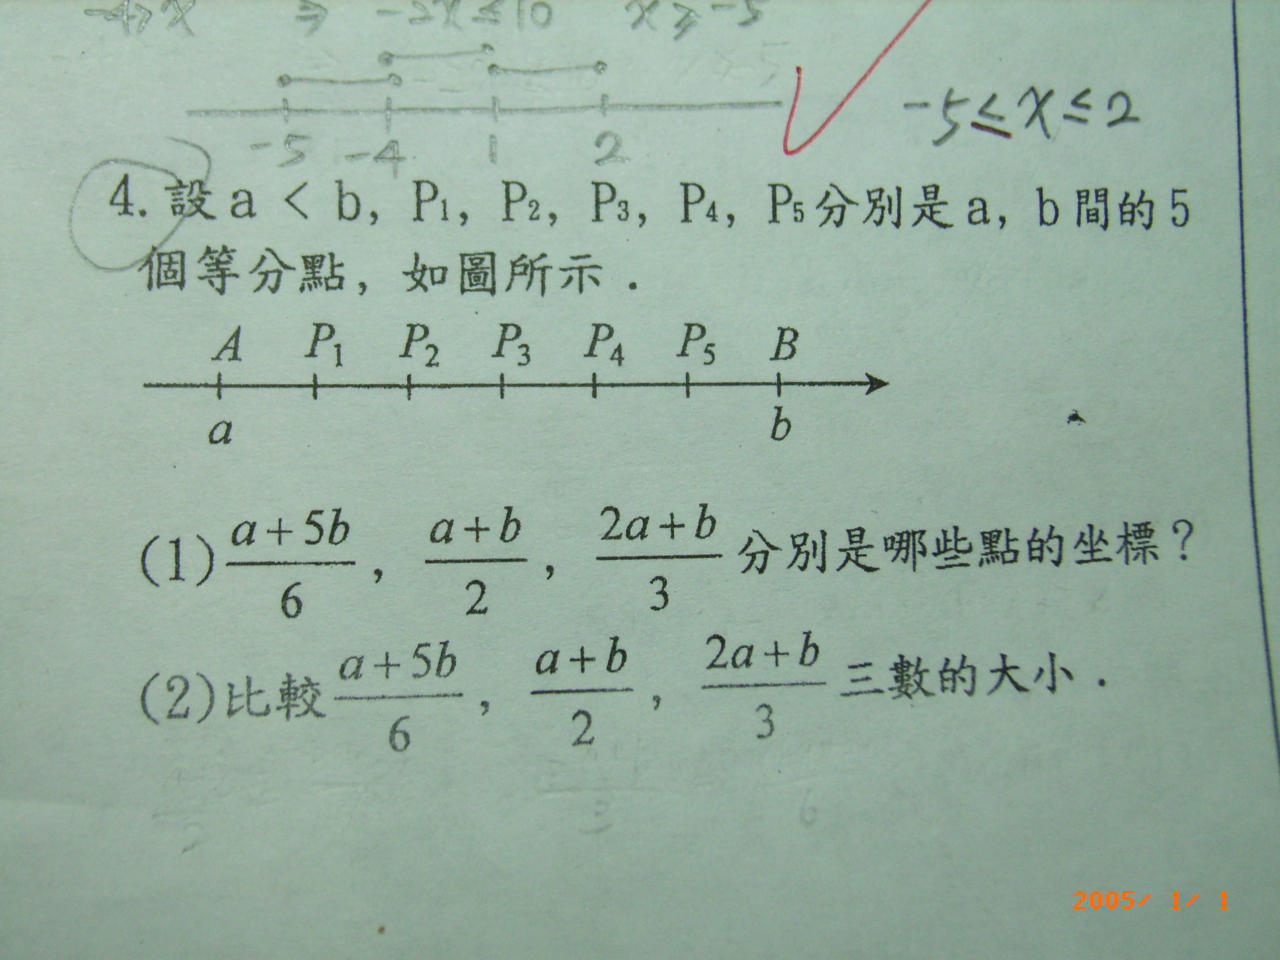 -4>x ⇒ -2x≤10 x≥-5
-5 -4 1 2
-5≤x≤2
4.設a < b, P₁, P₂, P₃, P₄, P₅分別是a, b間的5
個等分點, 如圖所示.
A P₁ P₂ P₃ P₄ P₅ B
a b
(1) (a+5b)/6, (a+b)/2, (2a+b)/3 分別是哪些點的坐標?
(2)比較 (a+5b)/6, (a+b)/2, (2a+b)/3 三數的大小.
2005/ 1/ 1